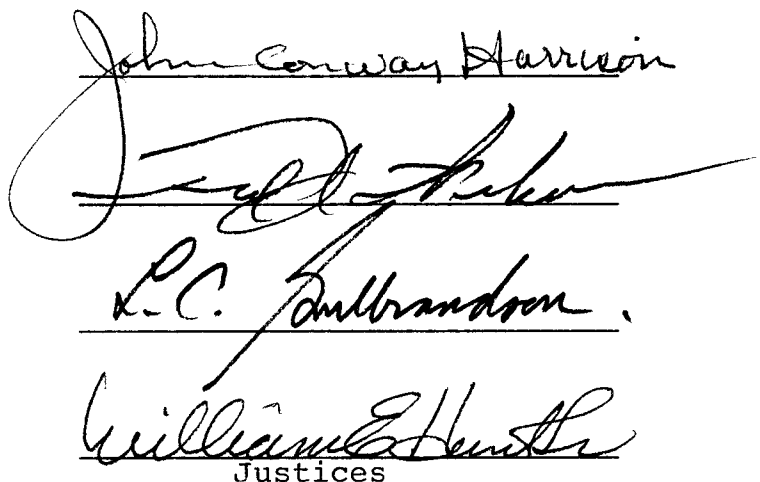 John Conway Harrison
L. C. Gulbrandson.
William E Hunt Sr
Justices